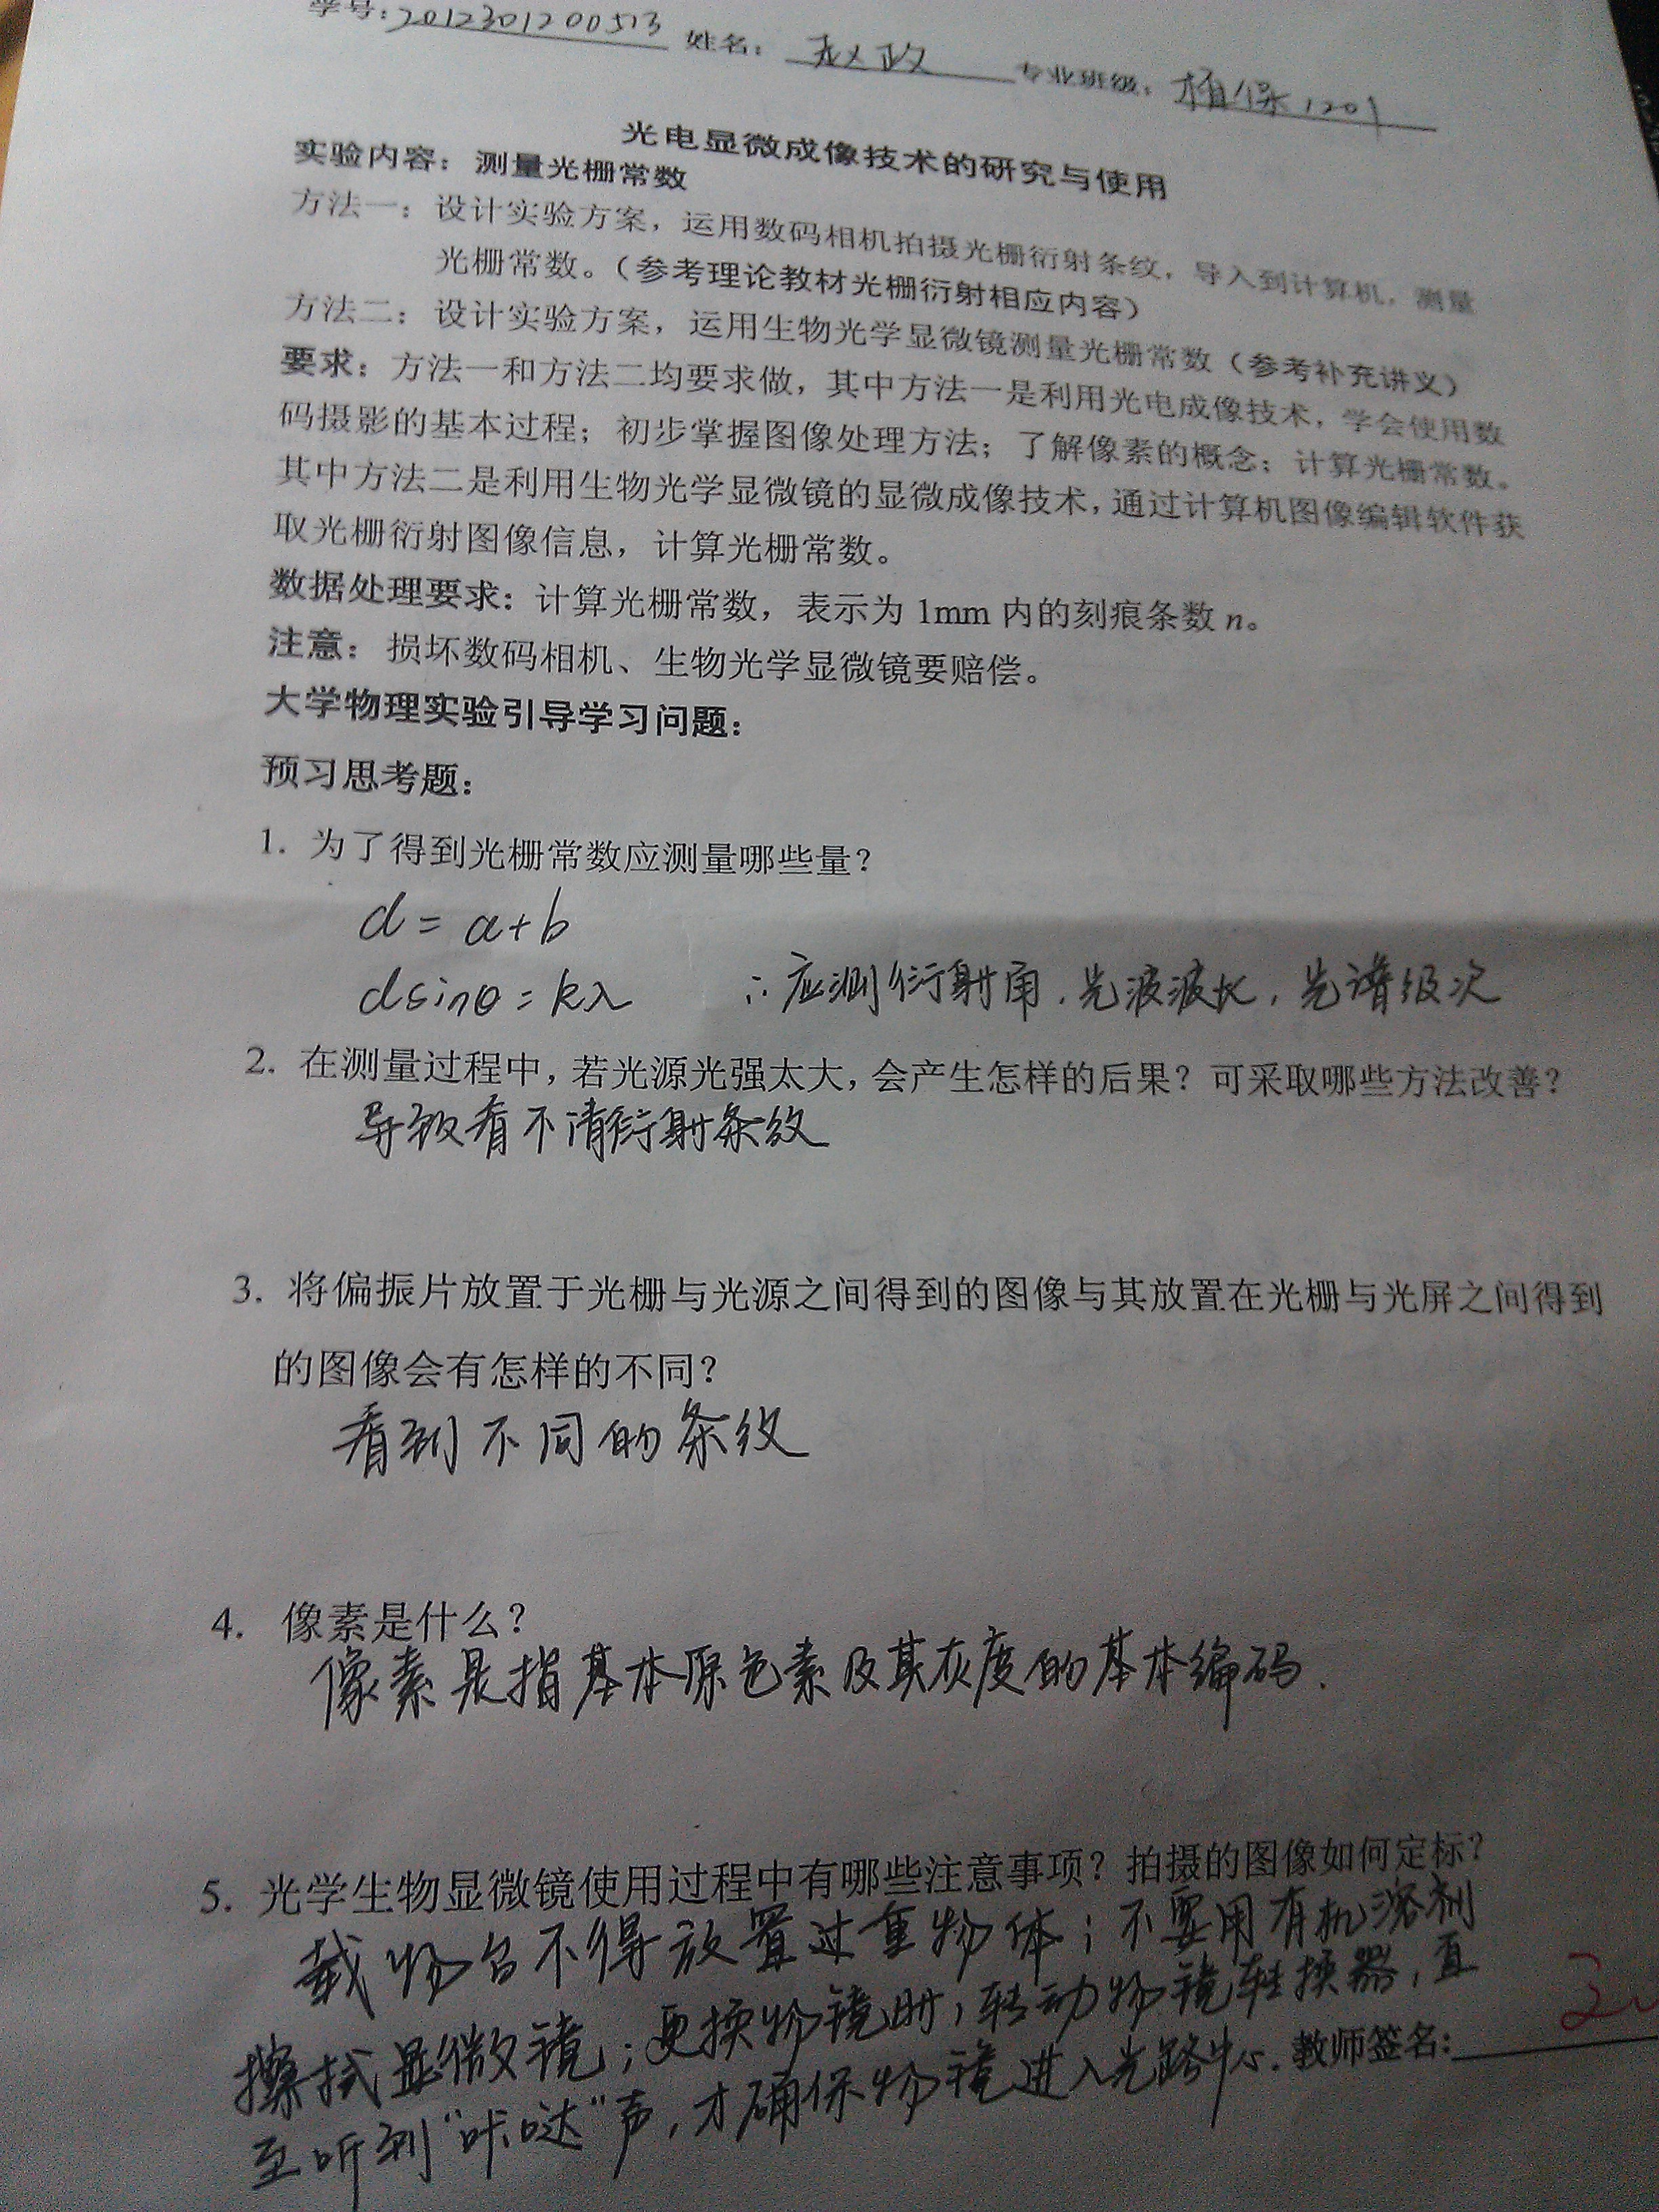 学号:2012301200513 姓名: 赵政 专业班级: 植保1201
光电显微成像技术的研究与使用
实验内容：测量光栅常数
方法一：设计实验方案，运用数码相机拍摄光栅衍射条纹，导入到计算机，测量
光栅常数。（参考理论教材光栅衍射相应内容）
方法二：设计实验方案，运用生物光学显微镜测量光栅常数（参考补充讲义）
要求：方法一和方法二均要求做，其中方法一是利用光电成像技术，学会使用数
码摄影的基本过程；初步掌握图像处理方法；了解像素的概念；计算光栅常数。
其中方法二是利用生物光学显微镜的显微成像技术，通过计算机图像编辑软件获
取光栅衍射图像信息，计算光栅常数。
数据处理要求：计算光栅常数，表示为1mm内的刻痕条数n。
注意：损坏数码相机、生物光学显微镜要赔偿。
大学物理实验引导学习问题：
预习思考题：
1. 为了得到光栅常数应测量哪些量？
d = a+b
dsinθ = kλ ∴应测衍射角，光波波长，光谱级次
2. 在测量过程中，若光源光强太大，会产生怎样的后果？可采取哪些方法改善？
导致看不清衍射条纹
3. 将偏振片放置于光栅与光源之间得到的图像与其放置在光栅与光屏之间得到
的图像会有怎样的不同？
看到不同的条纹
4. 像素是什么？
像素是指基本原色素及其灰度的基本编码.
5. 光学生物显微镜使用过程中有哪些注意事项？拍摄的图像如何定标？
载物台不得放置过重物体；不要用有机溶剂
擦拭显微镜；更换物镜时，转动物镜转换器，直
至听到“咔哒”声，才确保物镜进入光路中心. 教师签名: